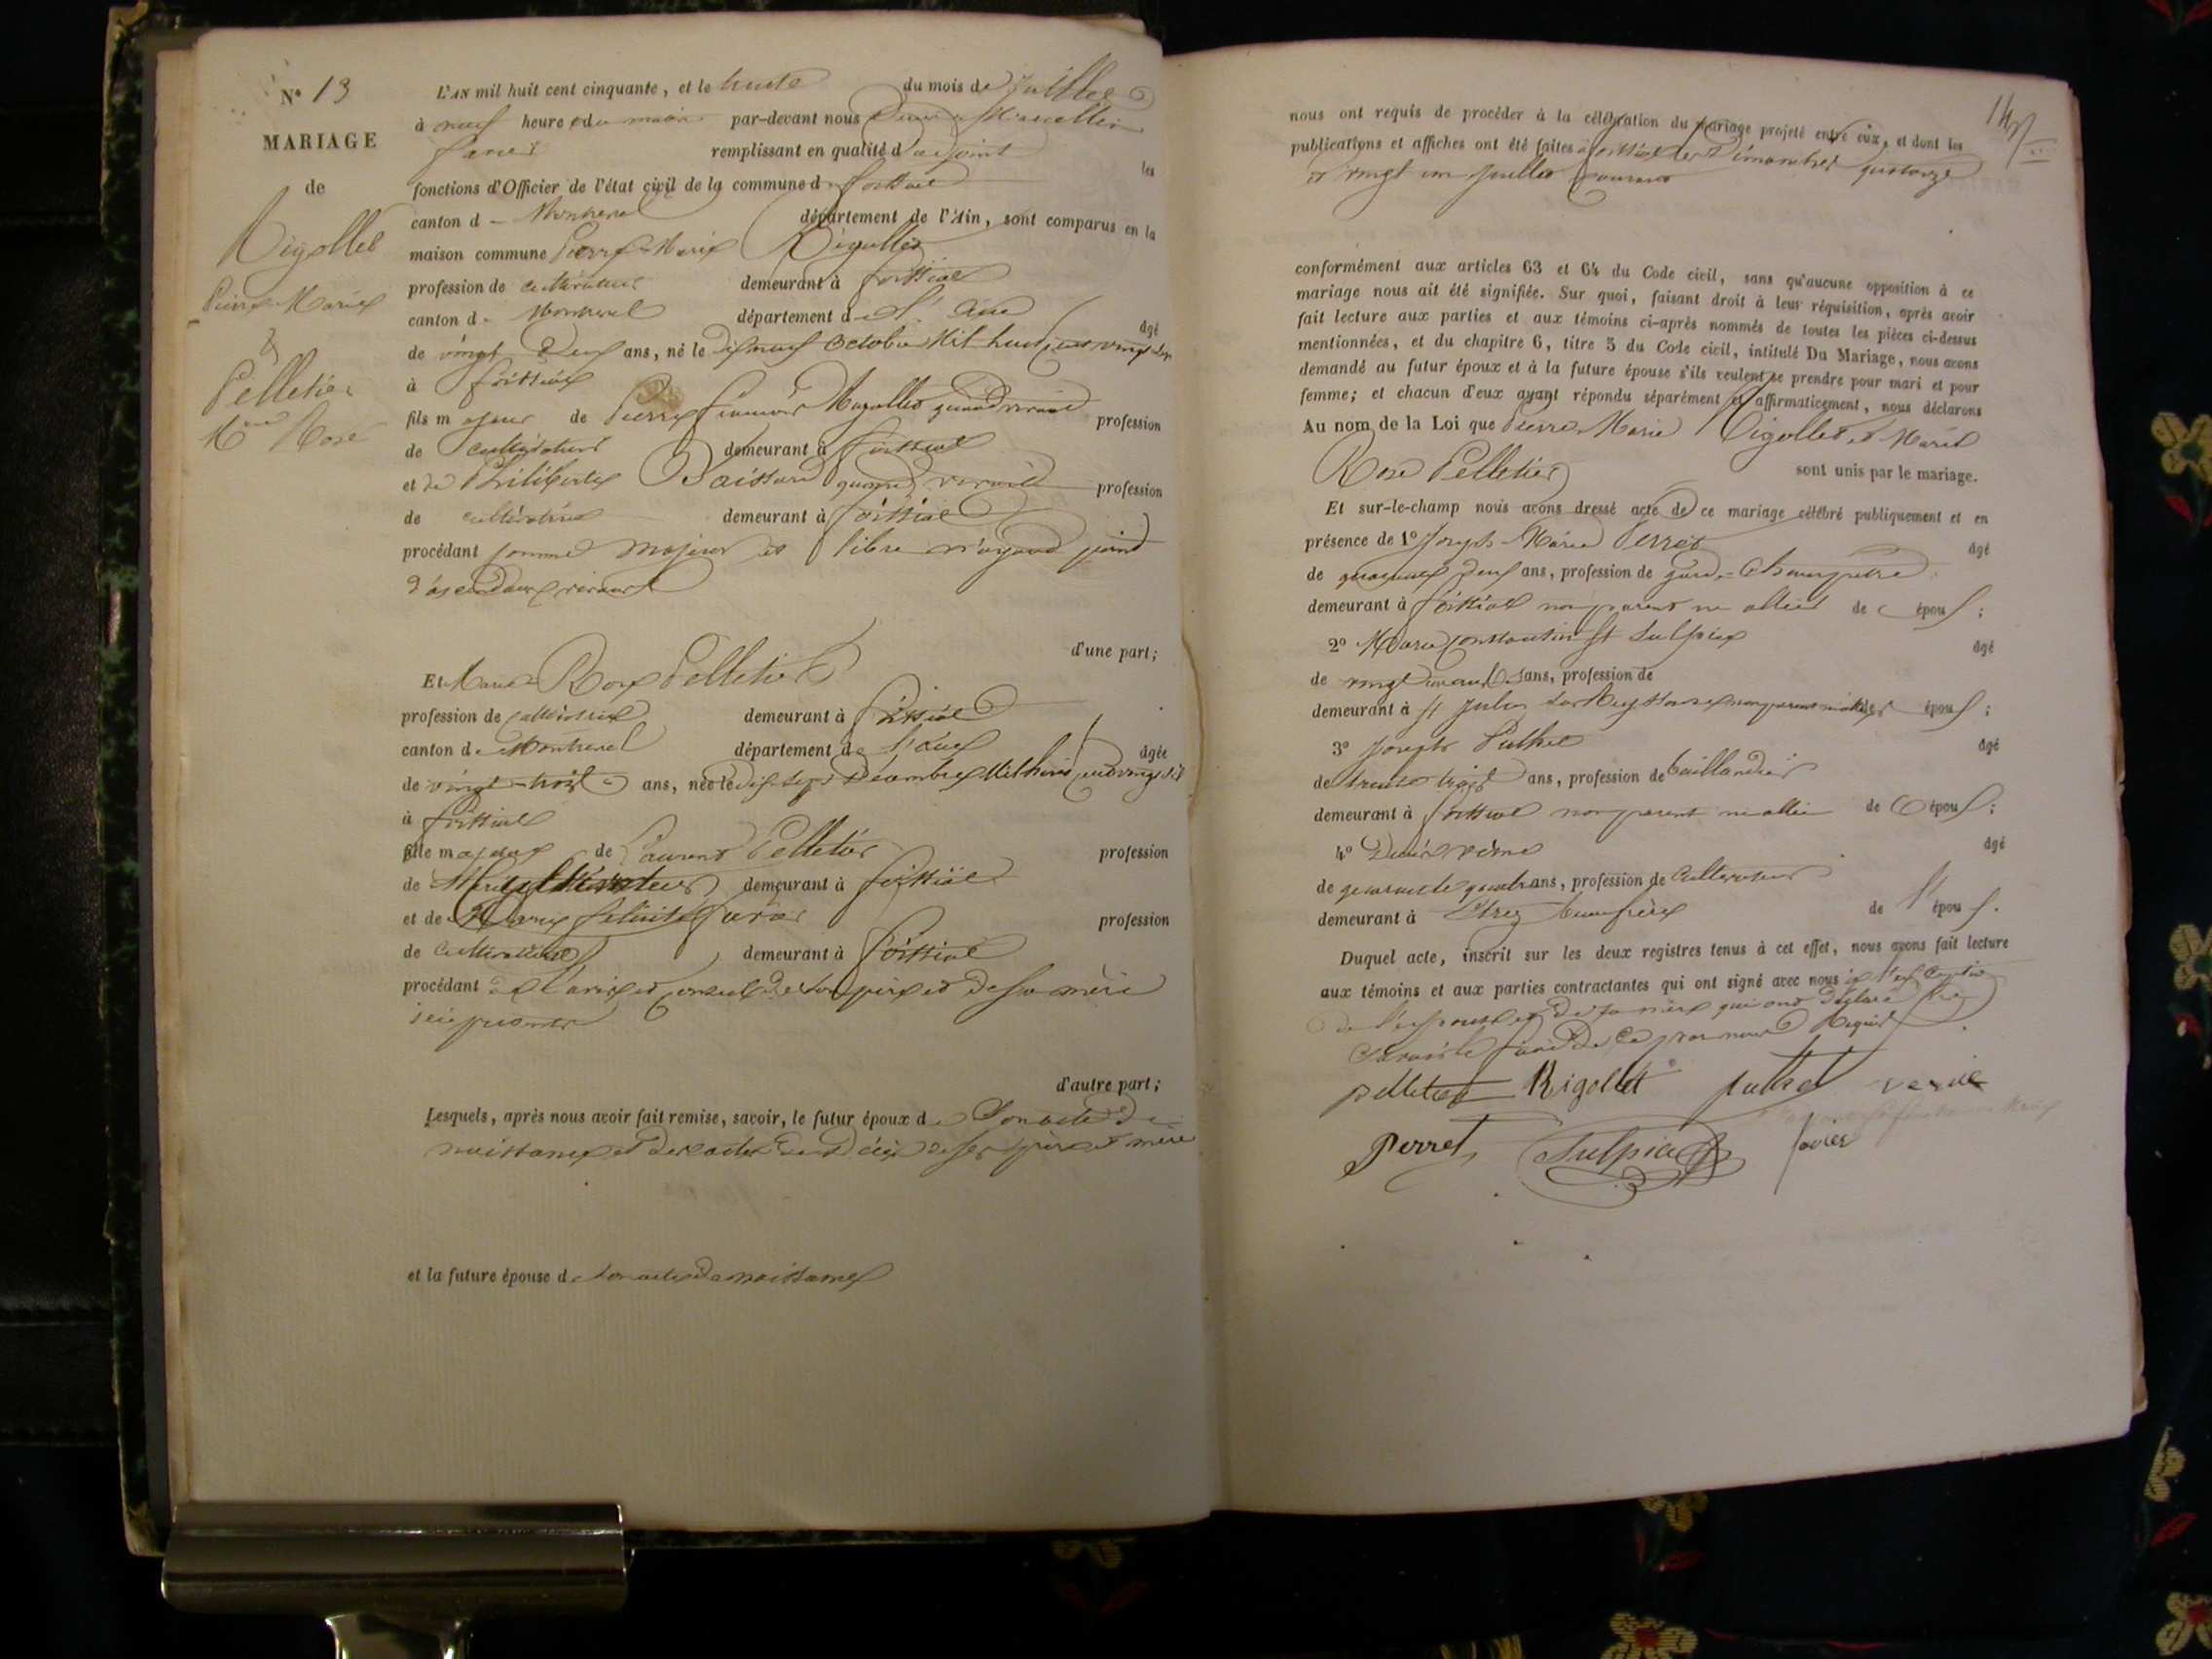 N° 13
MARIAGE
de
Rigollet
Pierre Marie
&
Pelletier
Mie Rose
L'AN mil huit cent cinquante, et le trente du mois de Juillet
à neuf heures du matin par-devant nous Denis Marcellin
Favier remplissant en qualité d'adjoint les
fonctions d'Officier de l'état civil de la commune de foissiat
canton de Montrevel département de l'Ain, sont comparus en la
maison commune Pierre Marie Rigollet
profession de cultivateur demeurant à foissiat
canton de Montrevel département de l'Ain âgé
de vingt deux ans, né le dix neuf octobre Mil huit cent vingt sept
à foissiat
fils majeur de Pierre françois Rigollet quand vivait profession
de cultivateur demeurant à foissiat
et de Philiberte quand vivait profession
de cultivatrice demeurant à foissiat
procédant comme majeur et libre n'ayant point
d'ascendants vivants
d'une part;
Et Marie Rose Pelletier
profession de cultivatrice demeurant à foissiat
canton de Montrevel département de l'Ain âgée
de vingt trois ans, née le dix sept décembre Mil huit cent vingt six
à foissiat
fille majeure de Laurent Pelletier profession
de cultivateur demeurant à foissiat
et de Marie félicité profession
de cultivatrice demeurant à foissiat
procédant de l'avis et conseil de son père et de sa mère
ici présents
d'autre part;
Lesquels, après nous avoir fait remise, savoir, le futur époux de Son acte de
naissance et des actes de décès de ses père et mère
et la future épouse de son acte de naissance
nous ont requis de procéder à la célébration du mariage projeté entre eux, et dont les
publications et affiches ont été faites à foissiat les Dimanches quatorze
et vingt un juillet courant
conformément aux articles 63 et 64 du Code civil, sans qu'aucune opposition à ce
mariage nous ait été signifiée. Sur quoi, faisant droit à leur réquisition, après avoir
fait lecture aux parties et aux témoins ci-après nommés de toutes les pièces ci-dessus
mentionnées, et du chapitre 6, titre 5 du Code civil, intitulé Du Mariage, nous avons
demandé au futur époux et à la future épouse s'ils veulent se prendre pour mari et pour
femme; et chacun d'eux ayant répondu séparément et affirmativement, nous déclarons
Au nom de la Loi que Pierre Marie Rigollet et Marie
Rose Pelletier sont unis par le mariage.
Et sur-le-champ nous avons dressé acte de ce mariage célébré publiquement et en
présence de 1° Joseph Marie Perret âgé
de quarante deux ans, profession de garde Champêtre
demeurant à foissiat non parent ni allié de époux;
2° Marie Constantin St Sulpice âgé
de vingt ans, profession de
demeurant à St Julien sur Reyssouze non parent ni allié des époux;
3° Joseph Puthet âgé
de trente trois ans, profession de taillandier
demeurant à foissiat non parent ni allié de époux;
4° Denis âgé
de quarante quatre ans, profession de Cultivateur
demeurant à Etrez beau frère de l'époux.
Duquel acte, inscrit sur les deux registres tenus à cet effet, nous avons fait lecture
aux témoins et aux parties contractantes qui ont signé avec nous à l'exception
de l'épouse et de sa mère qui ont déclaré ne
Savoir le faire de ce par nous Requis
pelletier Rigollet puthet
Perret Sulpice favier